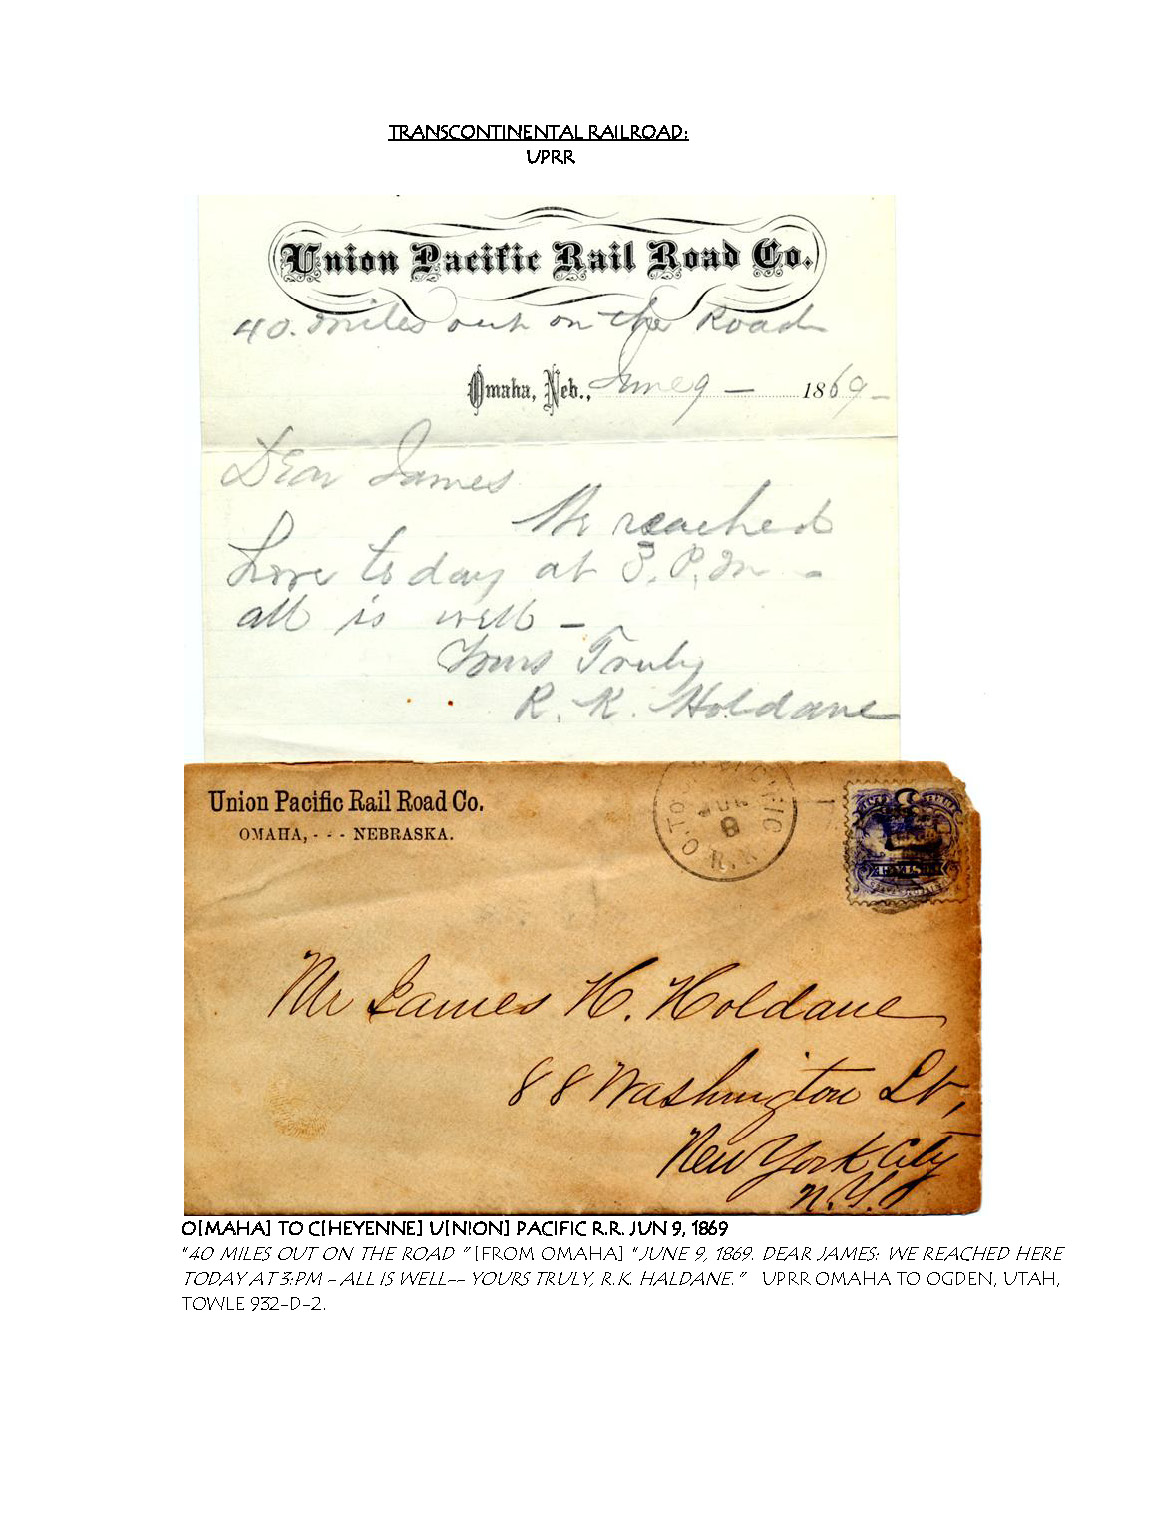 TRANSCONTINENTAL RAILROAD:
UPRR
Union Pacific Rail Road Co.
40. miles out on the Road
Omaha, Neb., June 9 — 1869 –
Dear James
We reached
here to day at 3. P. M –
all is well –
Yours Truly
R. K. Holdane
Union Pacific Rail Road Co.
OMAHA, - - - NEBRASKA.
O. TO
8
R.R.
Mr James H. Holdane
88 Washington St,
New York City
N.Y.
O[MAHA] TO C[HEYENNE] U[NION] PACIFIC R.R. JUN 9, 1869
"40 MILES OUT ON THE ROAD " [FROM OMAHA] "JUNE 9, 1869. DEAR JAMES: WE REACHED HERE
TODAY AT 3:PM - ALL IS WELL-- YOURS TRULY, R.K. HALDANE." UPRR OMAHA TO OGDEN, UTAH,
TOWLE 932-D-2.